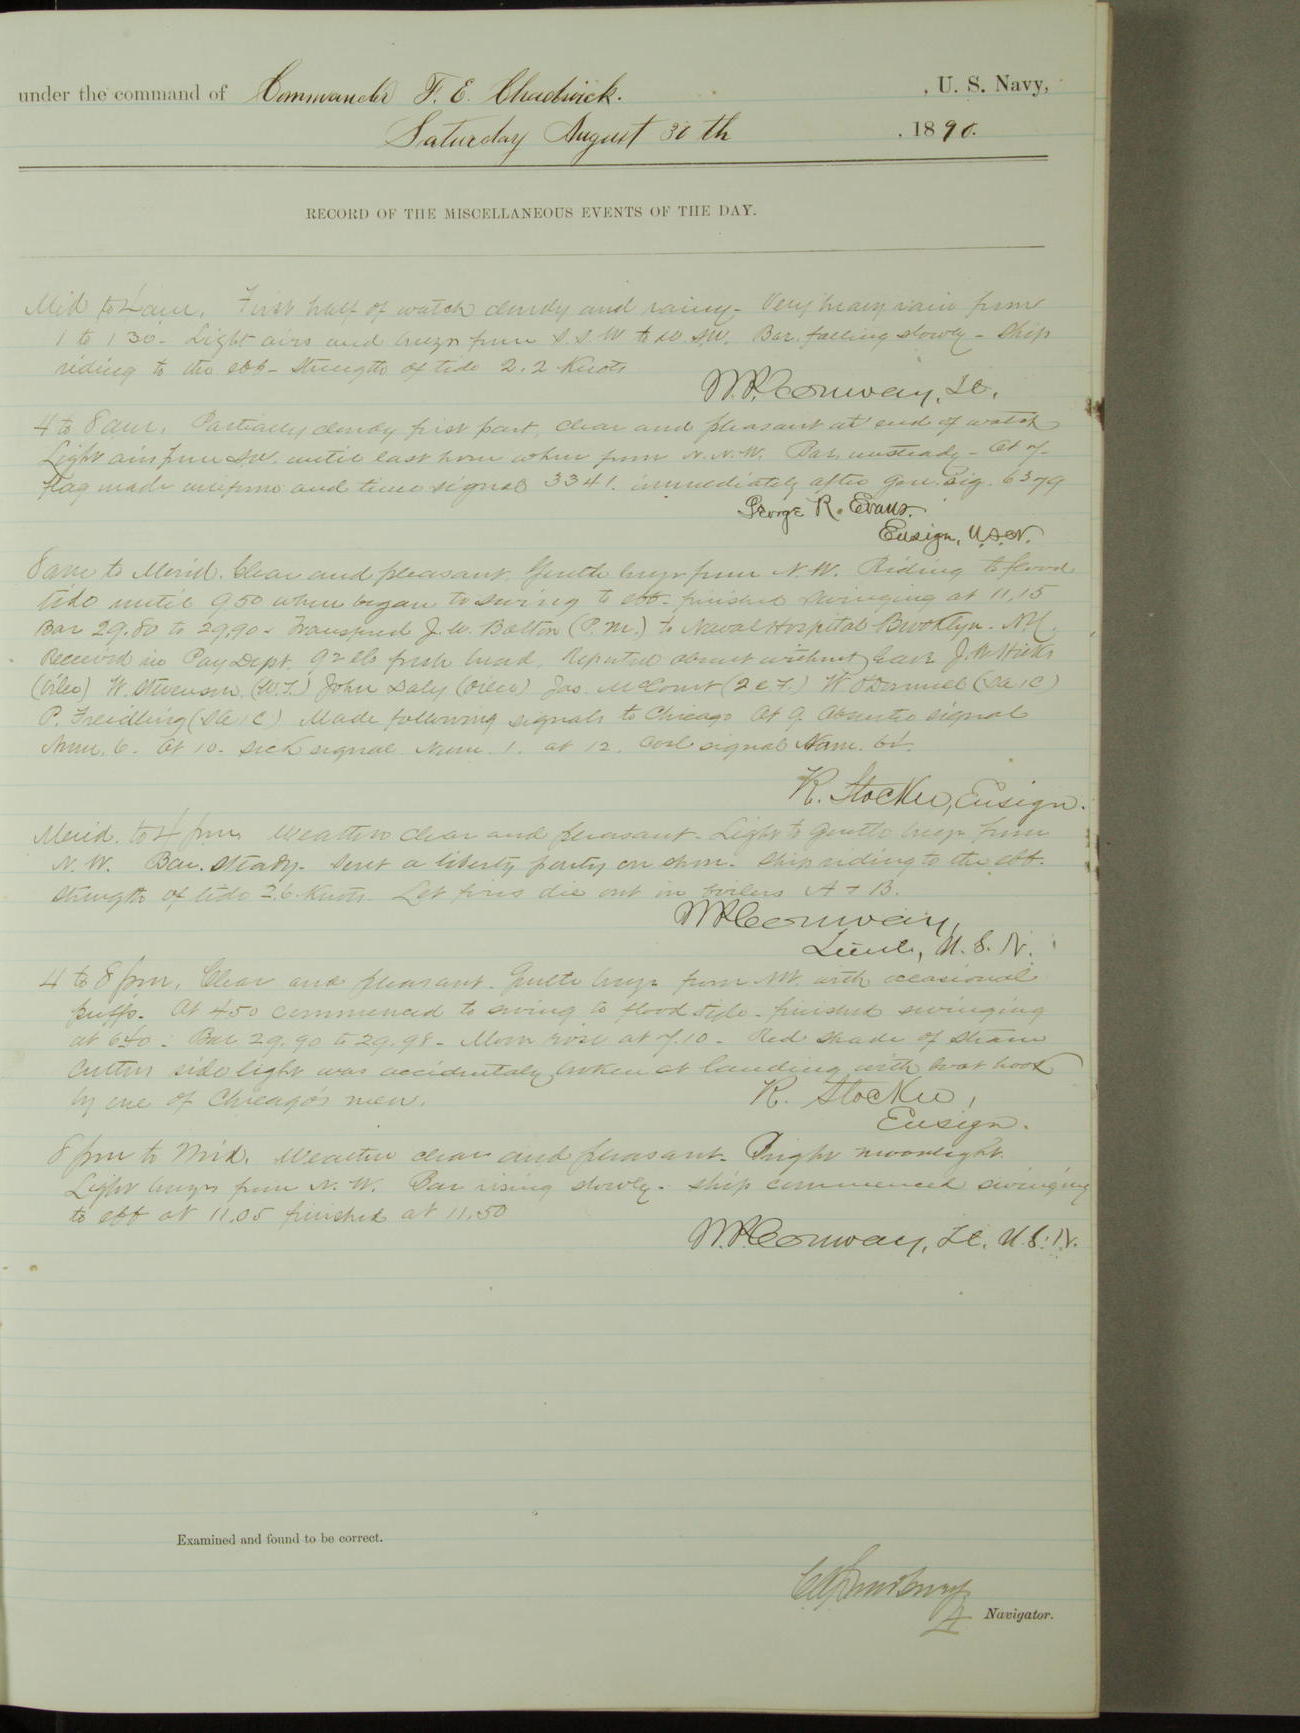 under the command of Commander F. E. Chadwick. , U. S. Navy,
Saturday August 30th , 1890.
RECORD OF THE MISCELLANEOUS EVENTS OF THE DAY.
Mid to 4 am. First half of watch cloudy and rainy - Very heavy rain from
1 to 1 30 - Light airs and breeze from S. S. W to W. S. W. Bar. falling slowly - Ship
riding to the ebb - Strength of tide 2.2 Knots
W. P. Conway, Lt.
4 to 8 am. Partially cloudy first part, clear and pleasant at end of watch
Light airs from S.W. until last hour when from N. N. W. Bar. unsteady - At 7
Flag made uniform and time signal 3341. immediately after Gen. Sig. 6379
George R. Evans.
Ensign, U.S.N.
8 am to Merid. Clear and pleasant. Gentle breeze from N. W. Riding to flood
tide until 9 50 when began to swing to ebb - finished swinging at 11.15
Bar 29.80 to 29.90 - Transferred J. W. Bolton (P. M.) to Naval Hospital Brooklyn. NY.
Received in Pay Dept. 92 lbs fresh bread. Reported absent without leave J. W. Hicks
(Oiler) W. Stevenson (W.T.) John Daly (Oiler) Jas. McCourt (2 c F.) W. O'Donnell (Sea 1C)
P. Freidling (Sea 1C) Made following signals to Chicago At 9. Absentee signal
Num. 6. At 10. Sick signal Num. 1. at 12. Coal signal Num.
R. Stocker, Ensign.
Merid. to 4 pm. Weather clear and pleasant - Light to gentle breeze from
N. W. Bar. steady - Sent a liberty party on shore - Ship riding to the ebb.
Strength of tide 2.6 Knots - Let fires die out in boilers A + B.
W P Conway,
Lieut., U. S. N.
4 to 8 pm. Clear and pleasant - Gentle breeze from NW. with occasional
puffs. At 4 50 commenced to swing to flood tide - finished swinging
at 6 40. Bar 29.90 to 29.98 - Moon rose at 7.10 - Red shade of steam
cutters side light was accidentaly broken at landing with boat hook
by one of Chicago's men.
R. Stocker,
Ensign.
8 pm to Mid. Weather clear and pleasant - Bright moonlight.
Light breeze from N. W. Bar rising slowly - Ship commenced swinging
to ebb at 11.05 finished at 11.50
W. P. Conway, Lt. U. S. N.
Examined and found to be correct.
Navigator.